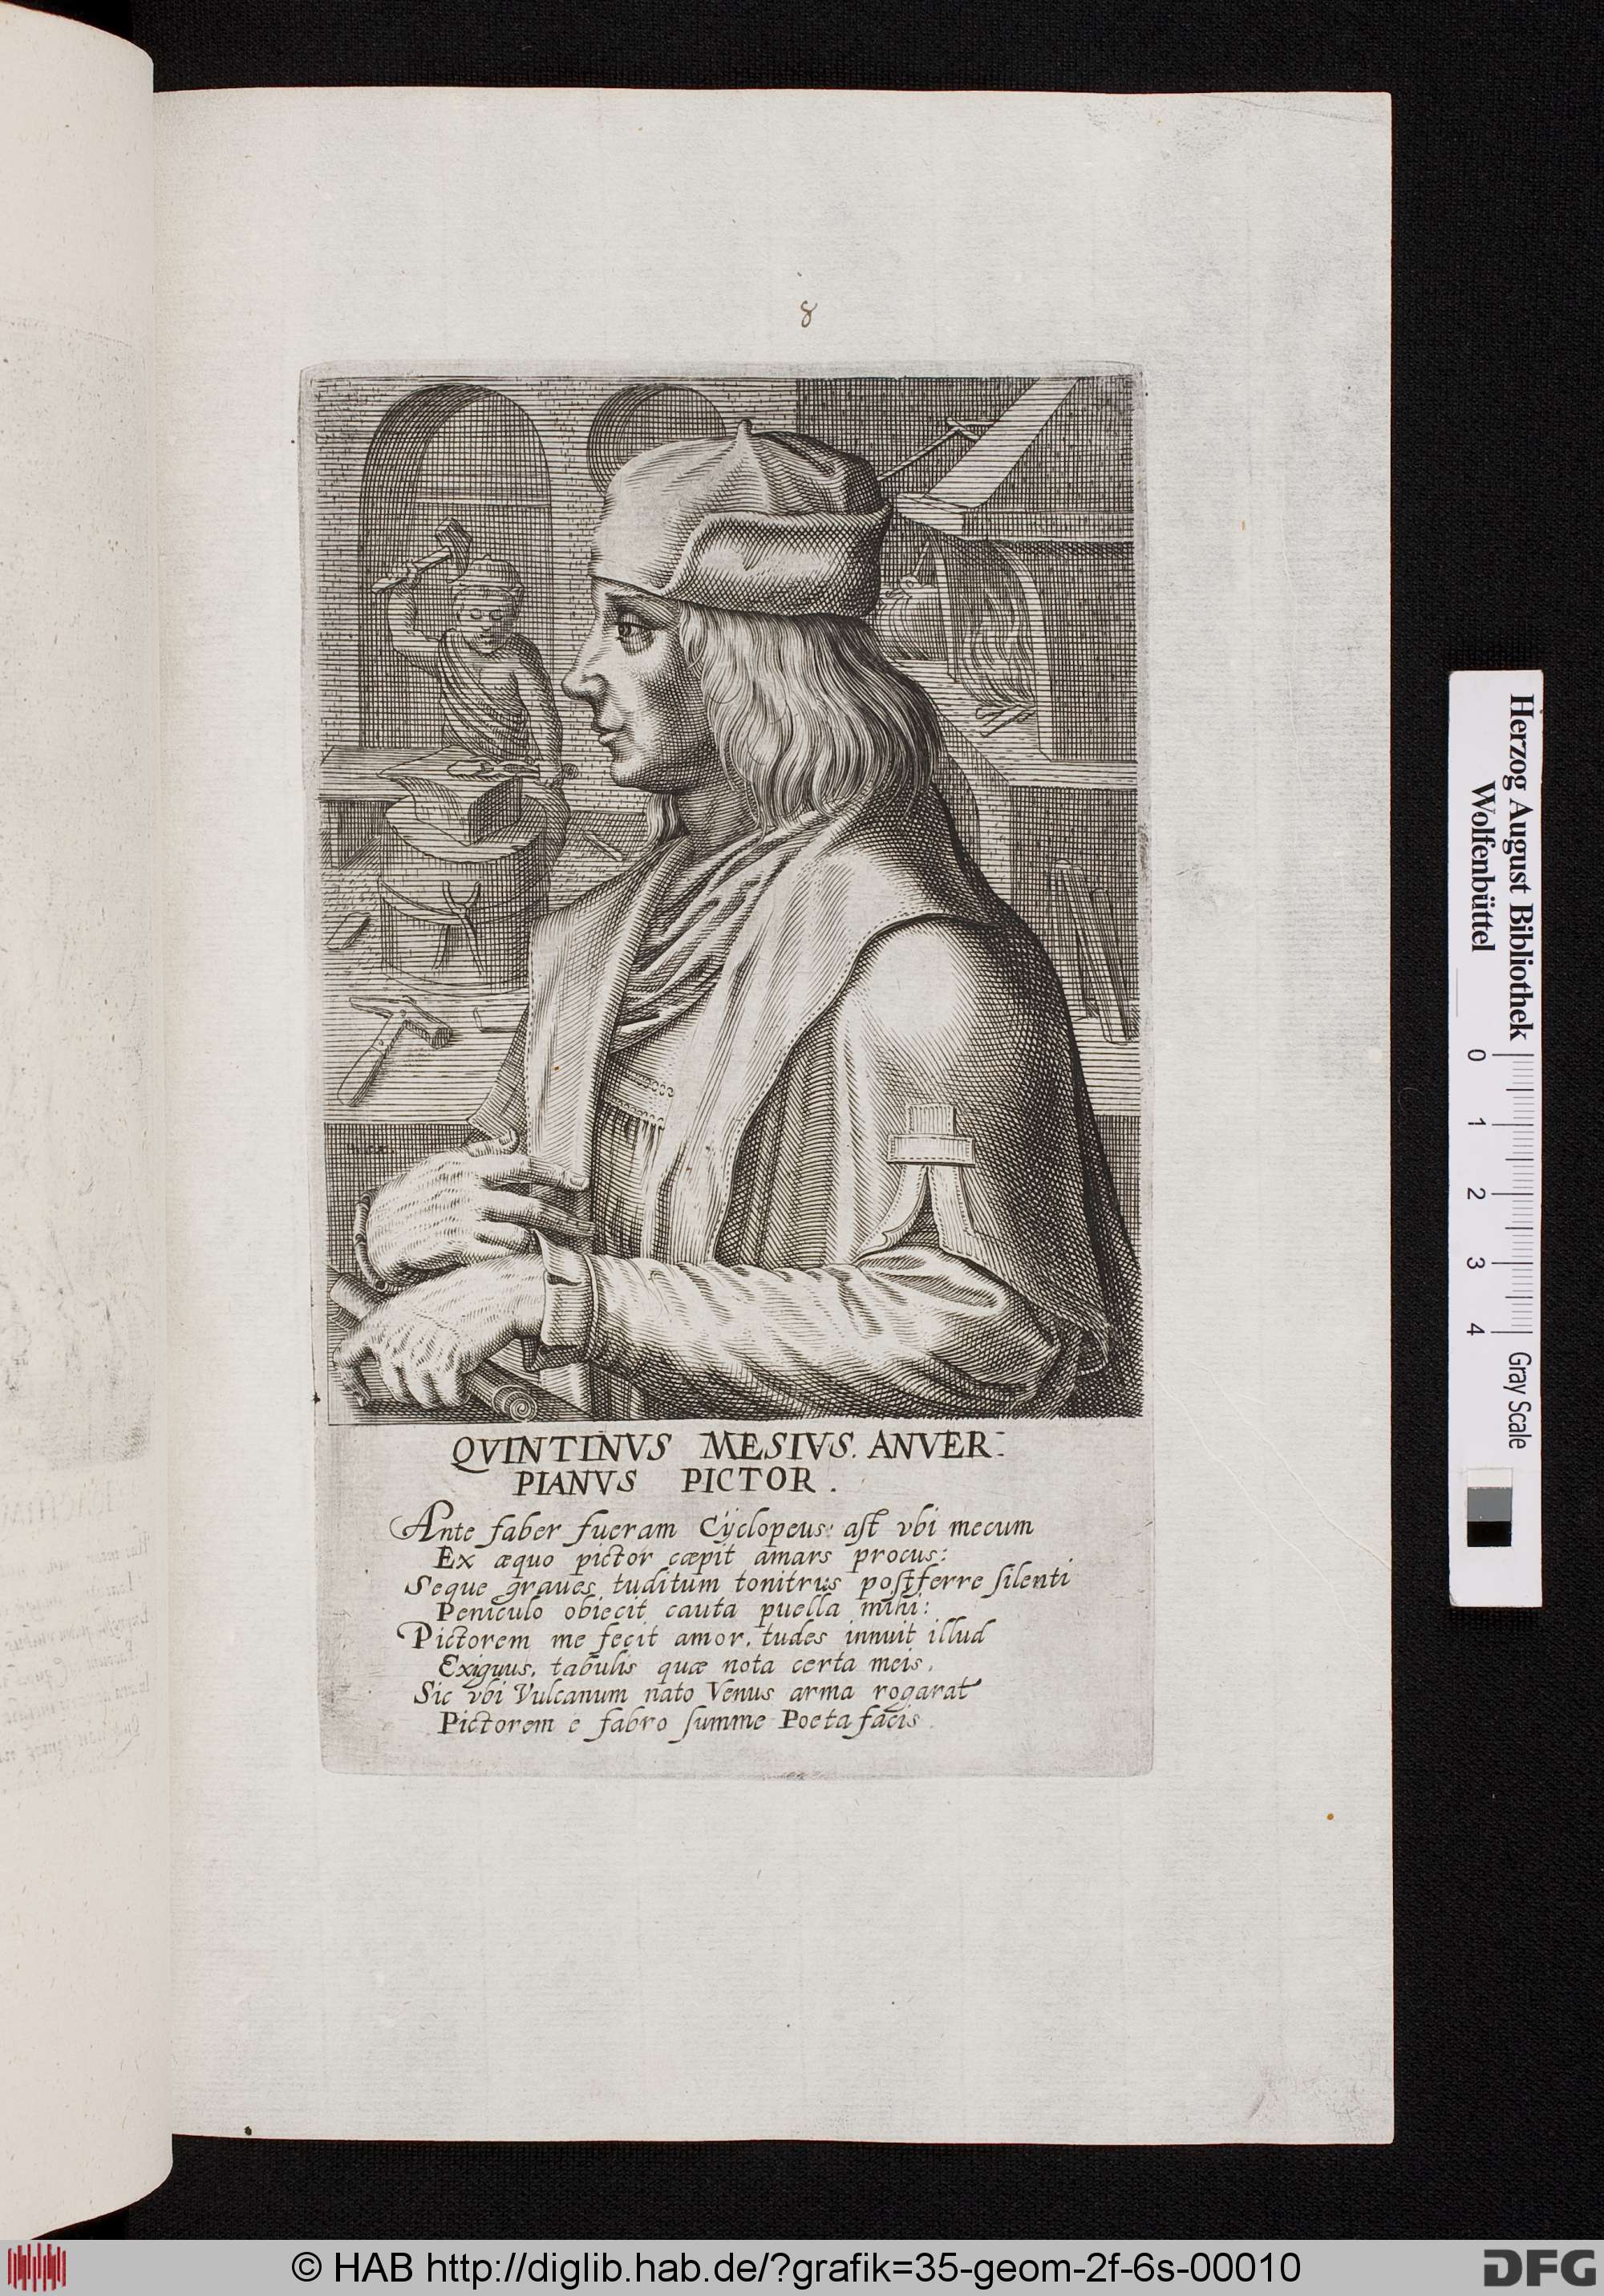 8
QVINTINVS MESIVS. ANVER-
PIANVS PICTOR.
Ante faber fueram Cÿclopeus: aſt vbi mecum
Ex æquo pictor cæpit amans procus:
Seque graues tuditum tonitrus poſtferre ſilenti
Peniculo obiecit cauta puella mihi:
Pictorem me fecit amor. tudes innuit illud
Exiguus, tabulis quæ nota certa meis.
Sic vbi Vulcanum nato Venus arma rogarat
Pictorem e fabro ſumme Poeta facis.
Herzog August Bibliothek
Wolfenbüttel
0 1 2 3 4 Gray Scale
© HAB http://diglib.hab.de/?grafik=35-geom-2f-6s-00010
DFG